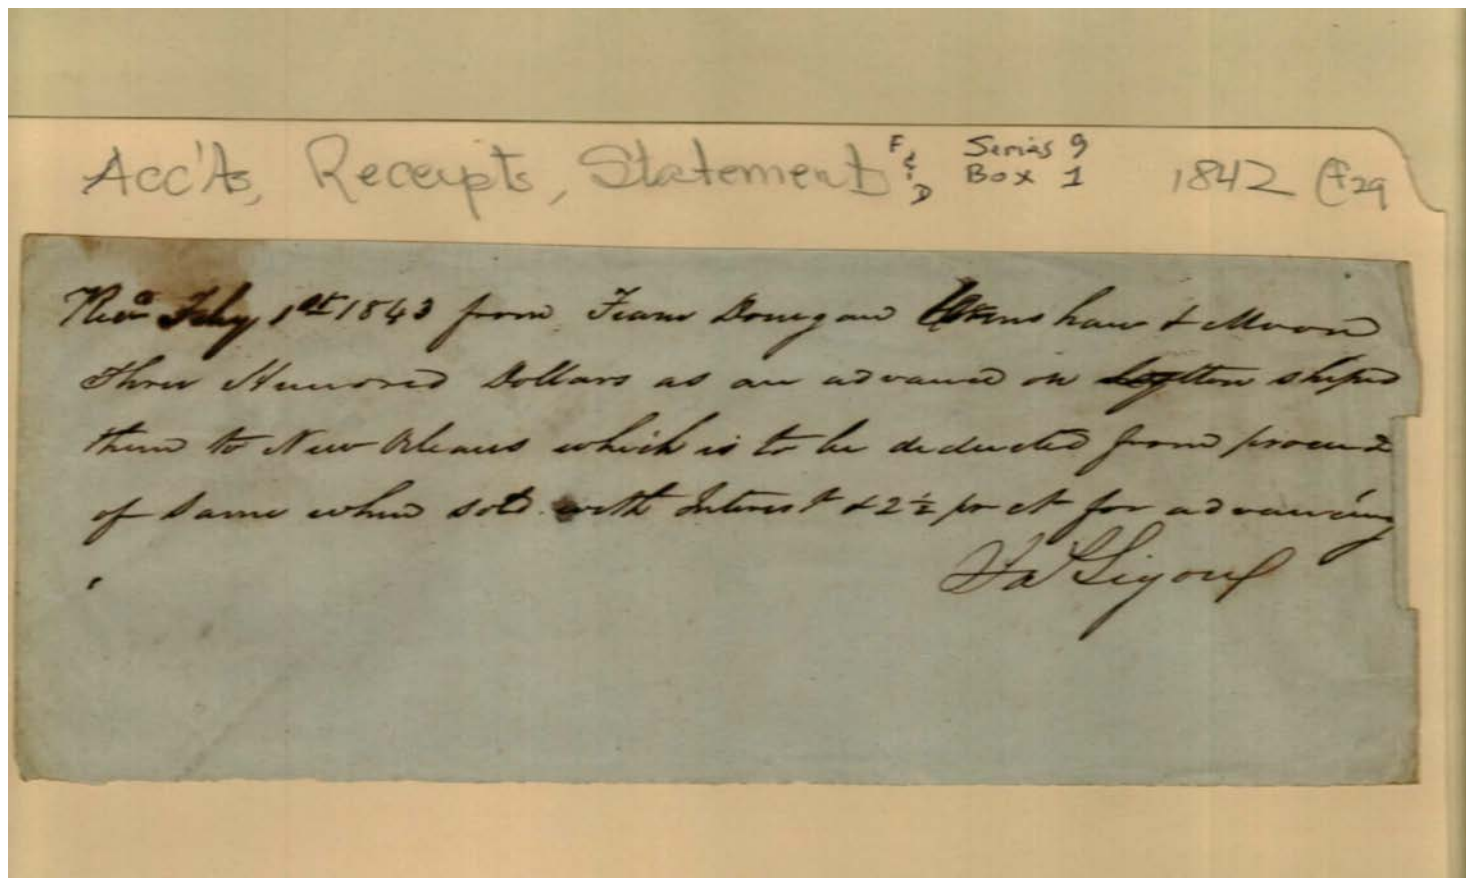 Acc'ts, Receipts, Statement F & D Series 9 Box 1 1842 f29
Recd Feby 1st 1843 from Fearn Donegan & Moore
Three Hundred Dollars as an advance on Cotton ship'd
them to New Orleans which is to be deducted from proceeds
of same when sold with Interest & 2½ pr ct for advancing
Ligon